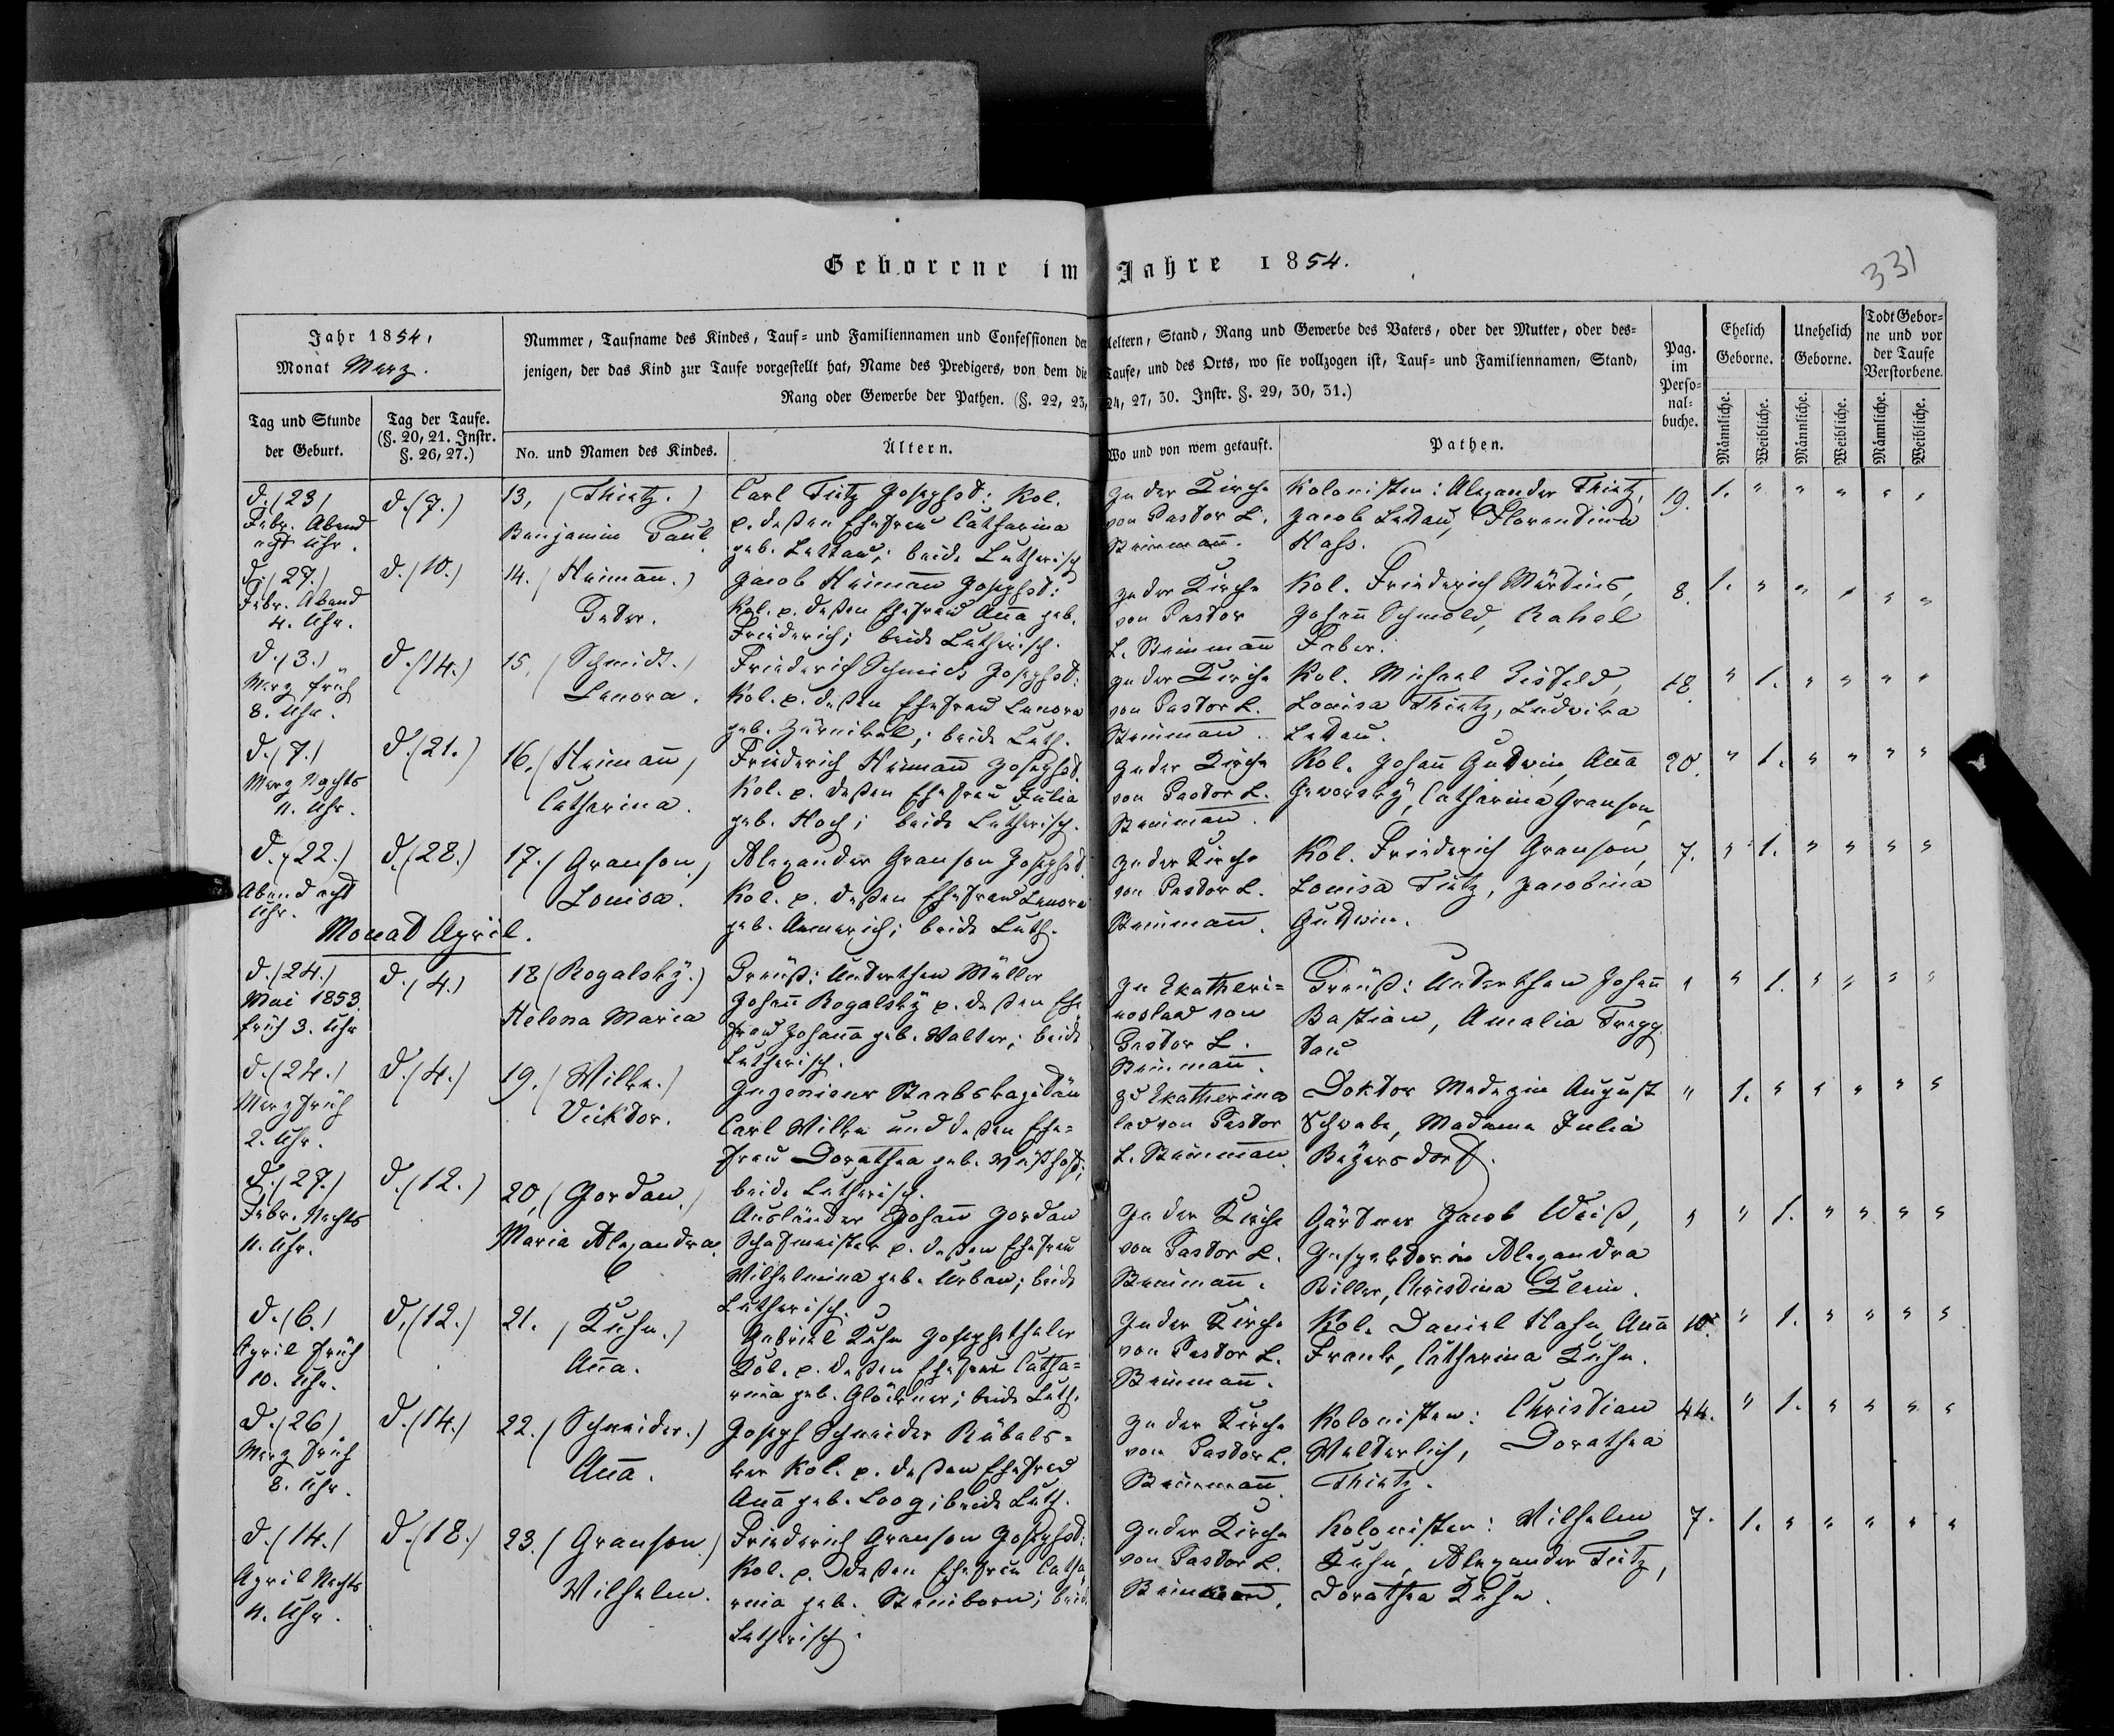 Geborene im Jahre 1854.
331
Jahr 1854.
Monat Merz.
Nummer, Taufname des Kindes, Tauf= und Familiennamen und Confessionen der Aeltern, Stand, Rang und Gewerbe des Vaters, oder der Mutter, oder des=
jenigen, der das Kind zur Taufe vorgestellt hat, Name des Predigers, von dem die Taufe, und des Orts, wo sie vollzogen ist, Tauf= und Familiennamen, Stand,
Rang oder Gewerbe der Pathen. (§. 22, 23, 24, 27, 30. Instr. §. 29, 30, 31.)
Pag.
im
Perso=
nal=
buche.
Ehelich
Geborne.
Unehelich
Geborne.
Todt Gebor=
ne und vor
der Taufe
Verstorbene.
Männliche.
Weibliche.
Männliche.
Weibliche.
Männliche.
Weibliche.
Tag und Stunde
der Geburt.
Tag der Taufe.
(§. 20, 21. Instr.
§. 26, 27.)
No. und Namen des Kindes.
Ältern.
Wo und von wem getauft.
Pathen.
d. (23)
Febr. Abend
acht Uhr.
d. (7.)
13, (Thietz.)
Benjamin Paul
Carl Tietz Josephsd: Kol.
p. deßen Ehefrau Catharina
geb. Lettau; beide Lutherisch
In der Kirche
von Pastor L.
Steinmann.
Kolonisten: Alexander Thietz,
Jacob Lettau, Florentina
Hass.
19. 1. " " " " "
d. (27.)
Febr. Abend
4. Uhr.
d. (10.)
14. (Heimann.)
Peter.
Jacob Heimann Josephsd:
Kol. p. deßen Ehefrau Anna geb.
Friederich; beide Lutherisch.
In der Kirche
von Pastor
L. Steinmann
Kol. Friederich Märtins,
Johann Schmold, Rahel
Faber.
8. 1. " " " " "
d. (3.)
Merz früh
8. Uhr.
d. (14.)
15. (Schmidt.)
Lenora.
Friederich Schmidt Josephsd:
Kol. p. deßen Ehefrau Lenora
geb. Zürnikel; beide Luth.
In der Kirche
von Pastor L.
Steinmann.
Kol. Michael Zisfeld,
Louisa Thietz, Ludwika
Lettau.
18 " 1. " " " "
d. (7.)
Merz Nachts
11. Uhr.
d. (21.)
16. (Heimann)
Catharina.
Friederich Heimann Josephsd.
Kol. p. deßen Ehefrau Julia
geb. Hoch; beide Lutherisch.
In der Kirche
von Pastor L.
Steinmann.
Kol. Johann Gudwin, Anna
Geworsky, Catharina Granson,
20. " 1. " " " "
d. (22.)
Abend acht
Uhr.
d. (28.)
17. (Granson)
Louisa.
Alexander Granson Josephsd.
Kol. p. deßen Ehefrau Lenora
geb. Aemerich; beide Luth.
In der Kirche
von Pastor L.
Steinmann.
Kol. Friederich Granson,
Louisa Tietz, Jacobina
Gudwin.
7. " 1. " " " "
Monat April.
d. (24.)
Mai 1853.
früh 3. Uhr
d. (4.)
18 (Rogalsky.)
Helena Maria
Preuß: Unterthan Müller
Johann Rogalsky p. deßen Ehe
frau Johanna geb. Walter; beide
Lutherisch.
In Ekatheri=
noslaw von
Pastor L.
Steinmann.
Preuß: Unterthan Johann
Bastian, Amalia Trepp
tau
" " 1. " " " "
d. (24.)
Merz früh
2. Uhr.
d. (4.)
19. (Wilke.)
Vicktor.
Ingenieur Staabskapitän
Carl Wilke und deßen Ehe=
frau Dorathea geb.
beide Lutherisch.
zu Ekatherinos
law von Pastor
L. Steinmann
Doktor Medezin August
Schwabe, Madama Julia
Beyersdorf.
" 1. " " " " "
d. (27.)
Febr. Nachts
11. Uhr.
d. (12.)
20, (Jordan.)
Maria Alexandra
Ausländer Johann Jordan
Schafmeister p. deßen Ehefrau
Wilhelmina geb. Urban; beide
Lutherisch.
In der Kirche
von Pastor L.
Steinmann.
Gärtner Jacob Weiß,
Inspektorin Alexandra
Biller, Christina Klein.
" " 1. " " " "
d. (6.)
April früh
10. Uhr.
d. (12.)
21. (Kuhn.)
Anna.
Gabriel Kuhn Josephsthaler
Kol. p. deßen Ehefrau Catha=
rina geb. Glöckner; beide Luth.
In der Kirche
von Pastor L.
Steinmann.
Kol. Daniel Hahn, Anna
Frank, Catharina Kuhn.
10. " 1. " " " "
d. (26)
Merz früh
8. Uhr.
d. (14.)
22. (Schneider.)
Anna.
Joseph Schneider Rübals=
ker Kol. p. deßen Ehefrau
Anna geb. Loog; beide Luth.
In der Kirche
von Pastor L.
Steinmann
Kolonisten: Christian
Welterlich, Dorathea
Thietz.
44. " 1. " " " "
d. (14.)
April Nachts
11. Uhr.
d. (18.)
23. (Granson)
Wilhelm.
Friederich Granson Josephsd:
Kol. p. deßen Ehefrau Catha
rina geb. Steinborn; beide
Lutherisch.
In der Kirche
von Pastor L.
Steinmann.
Kolonisten: Wilhelm
Kuhn, Alexander Tietz,
Dorathea Kuhn.
7. 1. " " " " "